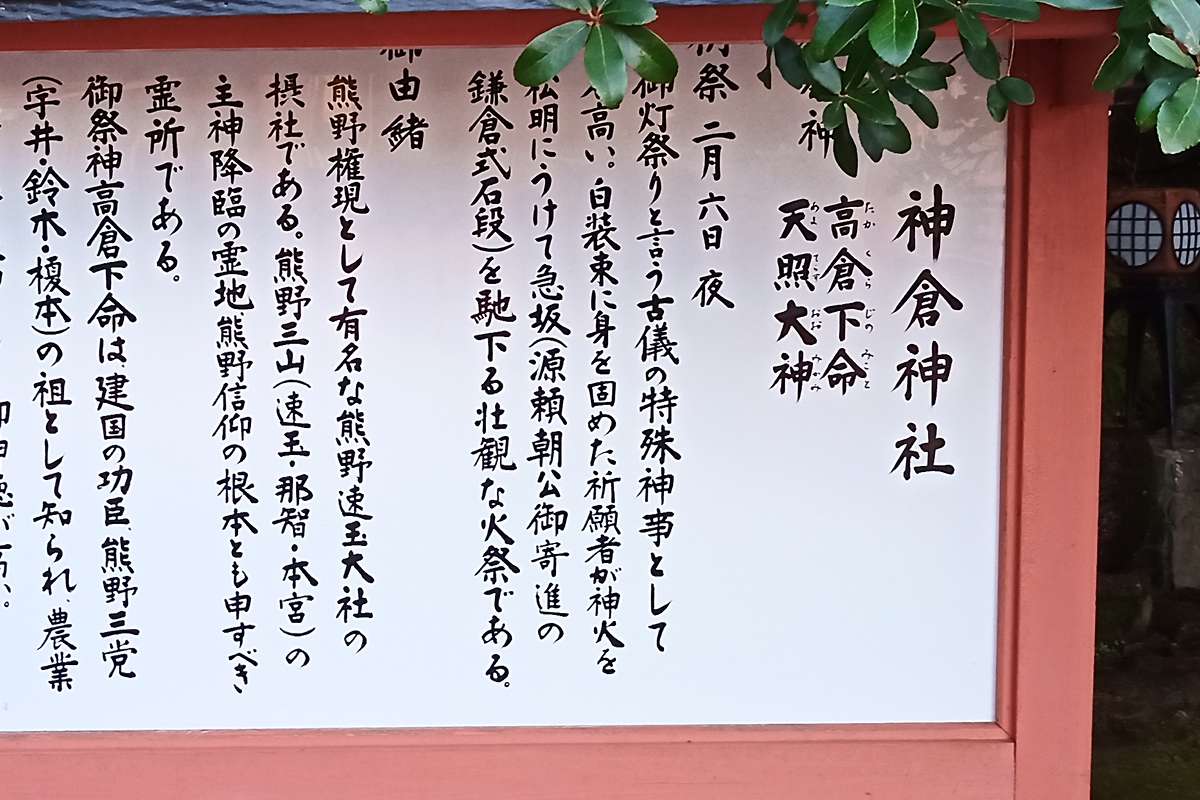 神倉神社
高倉下命
たかくらじのみこと
天照大神
あまてらすおおみかみ
祭 二月六日 夜
御灯祭りと言う古儀の特殊神事として
高い。白装束に身を固めた祈願者が神火を
松明にうけて急坂(源頼朝公御寄進の
鎌倉式石段)を馳下る壮観な火祭である。
御由緒
熊野権現として有名な熊野速玉大社の
摂社である。熊野三山(速玉・那智・本宮)の
主神降臨の霊地熊野信仰の根本とも申すべき
霊所である。
御祭神高倉下命は、建国の功臣、熊野三党
(宇井・鈴木・榎本)の祖として知られ、農業